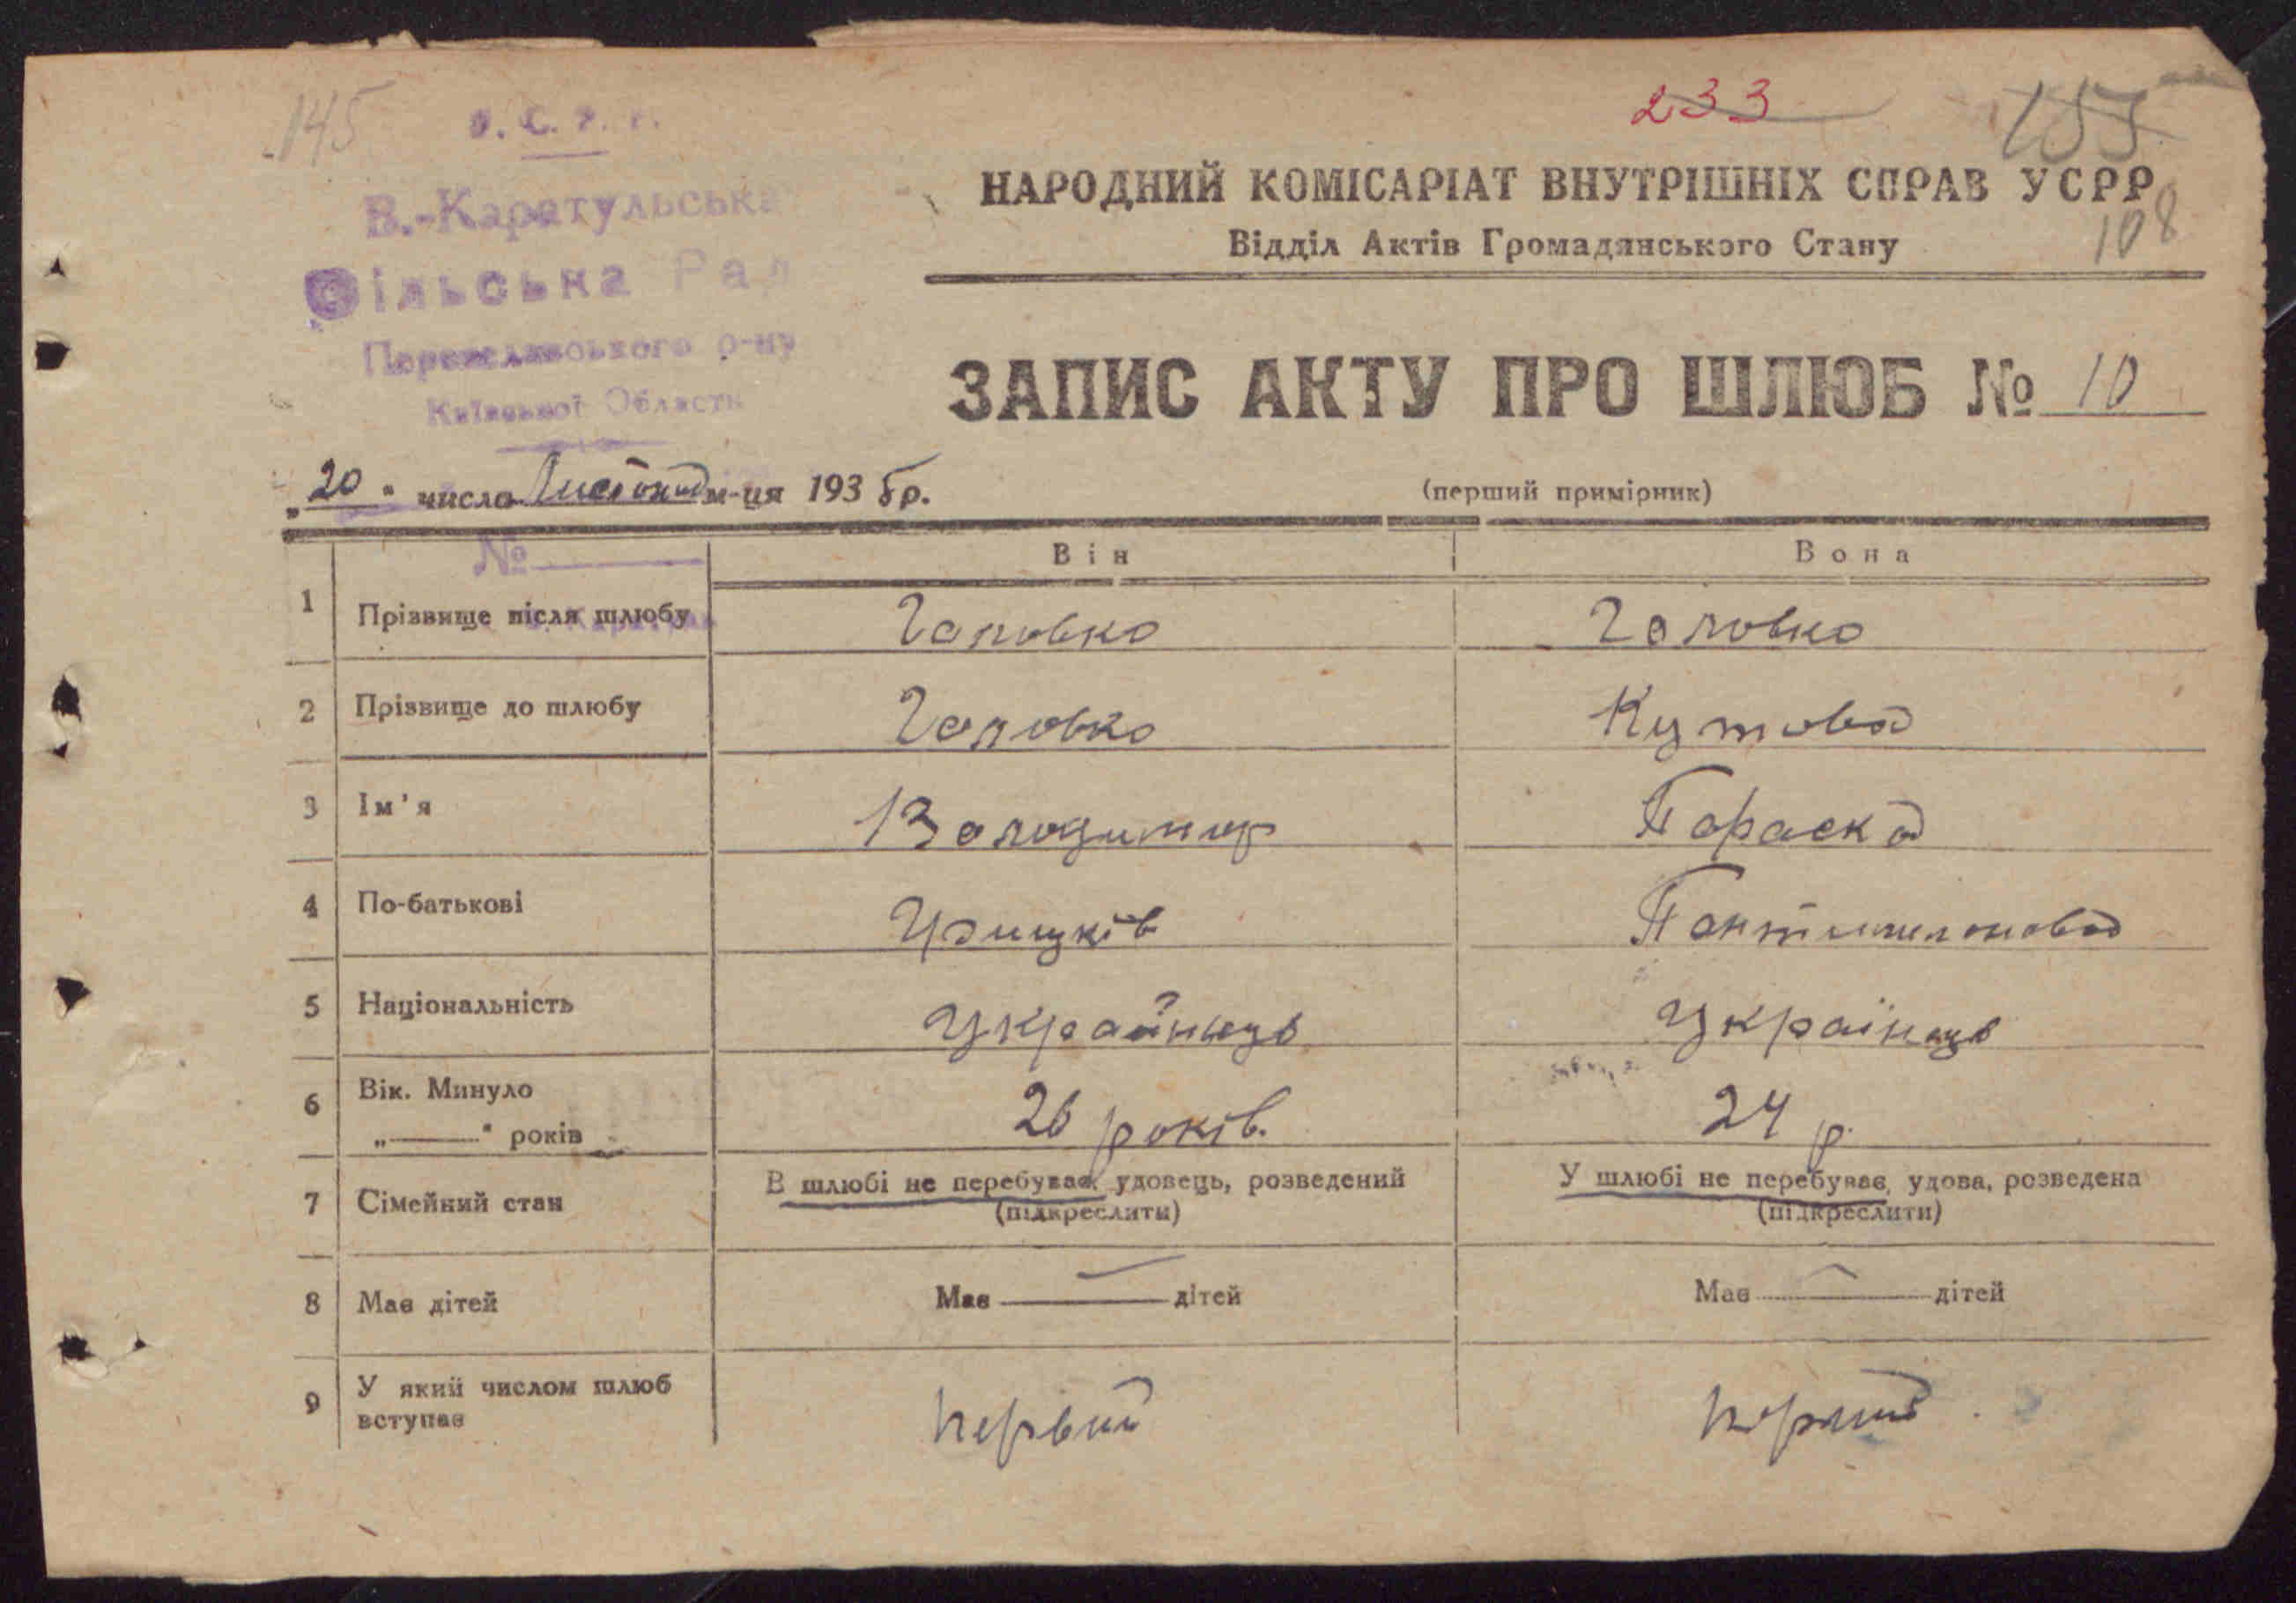 145
У. С. Р. Р.
233
155
В.-Каратульська
Сільська Рада
Переяславського р-ну
Київської Области
НАРОДНИЙ КОМІСАРІАТ ВНУТРІШНІХ СПРАВ УСРР
108
Відділ Актів Громадянського Стану
ЗАПИС АКТУ ПРО ШЛЮБ № 10
„20" число Листопад м-ця 1935 р.
(перший примірник)
№
Він Вона
1 Прізвище після шлюбу Головко Головко
2 Прізвище до шлюбу Головко Кутова
3 Ім'я Володимир Параска
4 По-батькові
5 Національність Українець Українець
6 Вік. Минуло
„——" років 26 років. 24 р.
7 Сімейний стан В шлюбі не перебуває, удовець, розведений У шлюбі не перебуває, удова, розведена
(підкреслити) (підкреслити)
8 Має дітей Має — дітей Має — дітей
9 У який числом шлюб
вступає первий перший